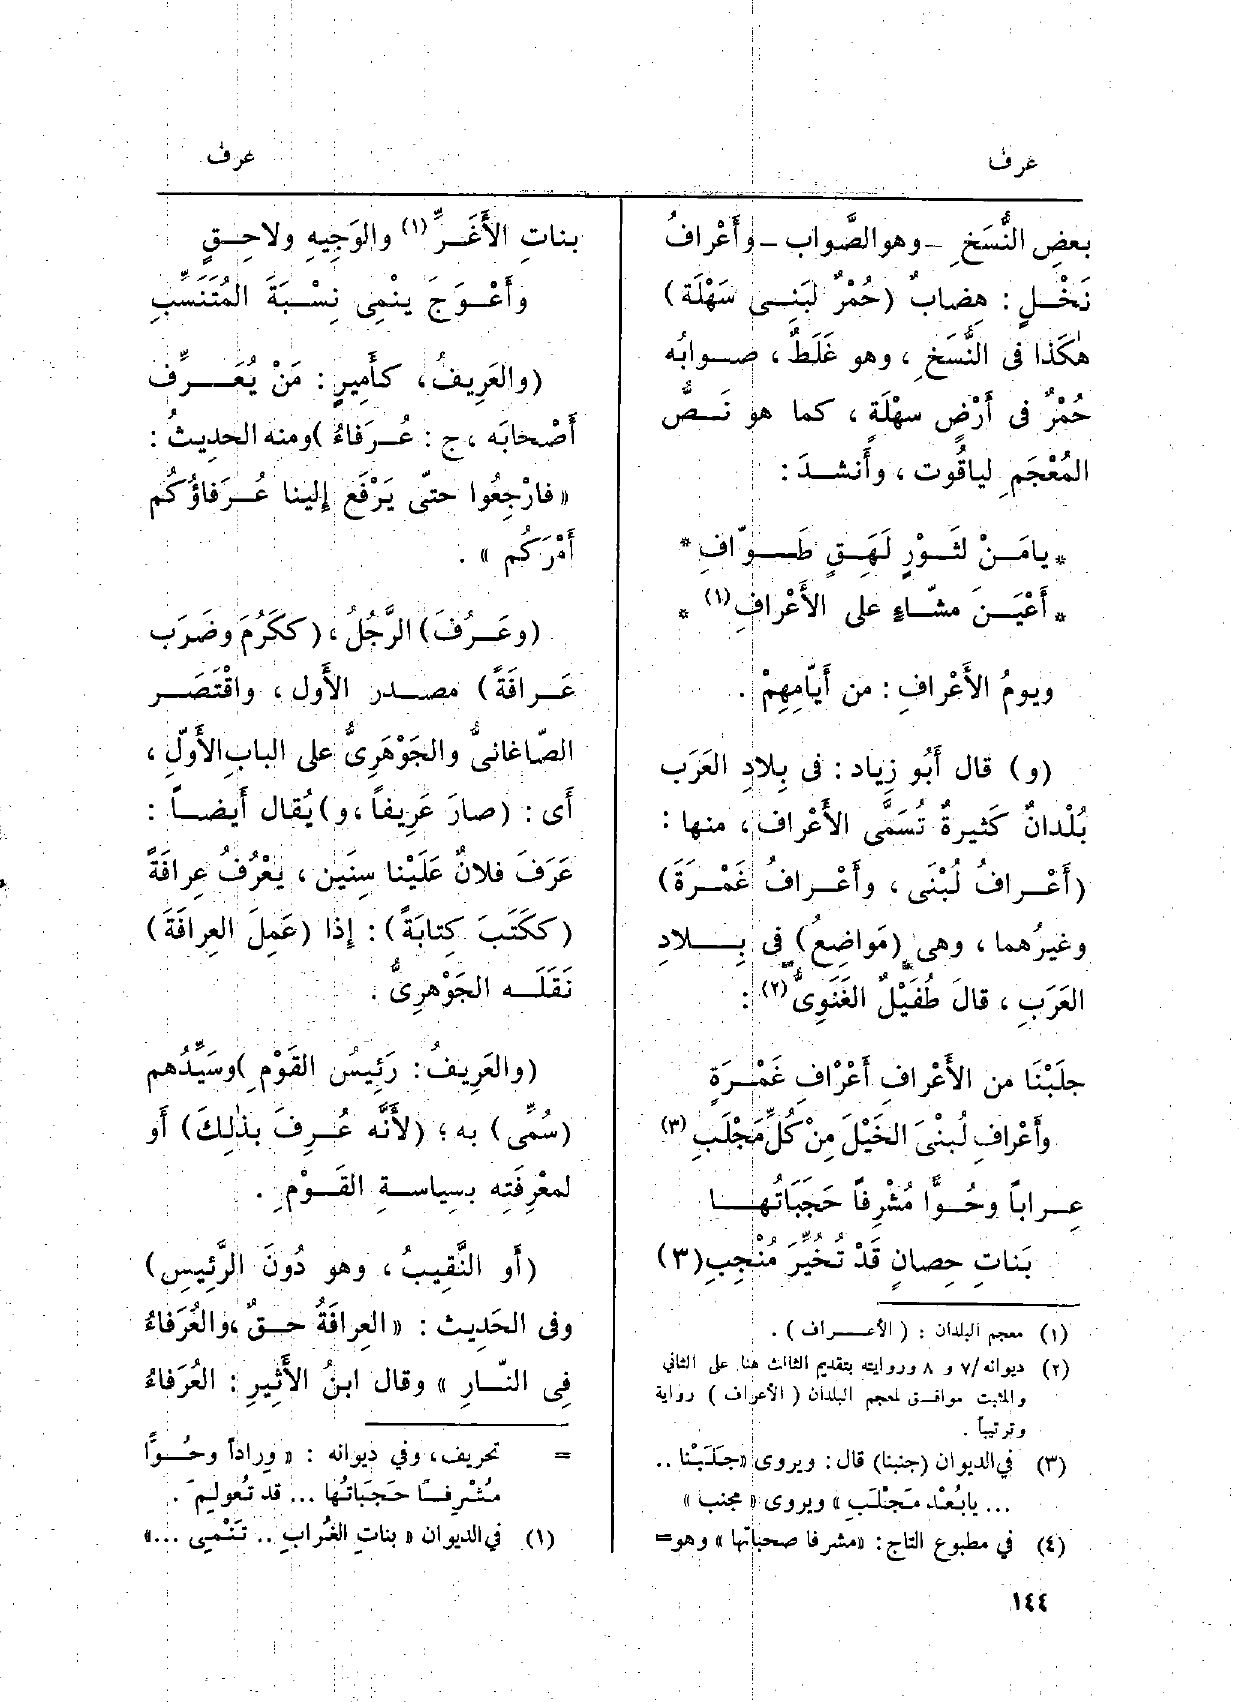 عرف
عرف
بعضِ النُّسَخِ -وهو الصَّواب- وأَعْرافُ
نَخْـلٍ : هِضابٌ (حُمْرٌ لبَنِـى سَهْلَة)
هٰكَذا فى النُّسَخِ ، وهو غَلَطٌ ، صـوابُه
حُمْرٌ فى أَرْضٍ سهْلَةٍ ، كما هو نَـصُّ
المُعْجَمِ لياقُوت ، وأَنشـدَ :
* يامَـنْ لثَـوْرٍ لَهِـقٍ طَـوّافِ *
* أَعْيَـنَ مشّاءٍ على الأَعْرافِ (١) *
ويومُ الأَعْرافِ : من أَيّامِهِمْ .
(و) قال أَبُو زِياد : فى بِلادِ العَرَب
بُلْدانٌ كَثيرةٌ تُسَمَّى الأَعْراف ، منها :
(أَعْـرافُ لُبْنَى ، وأَعْـرافُ غَمْـرَة)
وغيرُهما ، وهى (مَواضِعُ) فى بِـلادِ
العَرَبِ ، قالَ طُفَيْلٌ الغَنَوِىُّ (٢) :
جلَبْنَا من الأَعْرافِ أَعْرْافِ غَمْـرَةٍ
وأَعْرافِ لُبنْىَ الخَيْلَ مِنْ كُلِّ مَجْلَبِ (٣)
عِـراباً وحُـوًّا مُشْرِفاً حَجَبَاتُهـا
بَناتِ حِصانٍ قَدْ تُخُيِّرَ مُنْجِبِ (٣)
(١) معجم البلدان : ( الأعـراف ) .
(٢) ديوانه /٧ و ٨ وروايته بتقديم الثالث هنا على الثاني
والمثبت موافـق لمعجم البلدان ( الأعراف ) رواية
وترتيباً .
(٣) في الديوان (جنبنا) قال : ويروى «جَلَبْنا ..
... يابُعْد مَجْلَبِ» ويروى « مجنب »
(٤) في مطبوع التاج : «مشرفا صحباتها » وهو=
بناتِ الأَغَـرِّ (١) والوَجِيهِ ولاحِـقٍ
وأَعْـوَجَ ينْمِى نِسْـبَةَ المُتَنَسِّبِ
(والعَرِيفُ، كأَمِيرٍ : مَنْ يُعَـرِّف
أَصْحابَه ، ج : عُـرَفاءُ) ومنه الحدِيثُ :
« فارْجِعُوا حتّى يَرْفَع إلينا عُـرَفاؤُكُم
أَمْرَكُم » .
(وعَـرُفَ) الرَّجُلُ، (ككَرُمَ وضَرَب
عَـرافَةً) مصـدر الأَول ، واقْتَصَـر
الصّاغانىُّ والجَوْهَرِىُّ على البابِ الأَوّلِ ،
أَى : (صارَ عَرِيفاً ، و) يُقال أَيضـاً :
عَرَفَ فلانٌ عَلَيْنا سِنَين ، يَعْرُفُ عِرافَةً
(ككَتَبَ كِتابَةً) : إِذا (عَمِلَ العِرافَةَ)
نَقَلَـه الجَوْهرِىُّ .
(والعَرِيفُ : رَئِيسُ القَوْمِ) وسَيِّدُهم
(سُمِّى) به ؛ (لأَنَّه عُـرِفَ بذٰلِكَ) أَو
لمعْرِفَتِه بسِياسـةِ القَـوْمِ .
(أَو النَّقِيبُ ، وهو دُونَ الرَّئِيسِ)
وفى الحَدِيث : « العِرافَةُ حـقٌّ ،والعُرَفاءُ
فِى النّـارِ » وقال ابنُ الأَثِيرِ : العُرَفاءُ
= تحريف، وفي ديوانه : « وِراداً وحُـوًّا
مُشْرِفـاً حَجَباتُها ... قد تُعولِمَ .
(١) في الديوان « بناتِ الغُراب .. تَنْمِى ...»
١٤٤